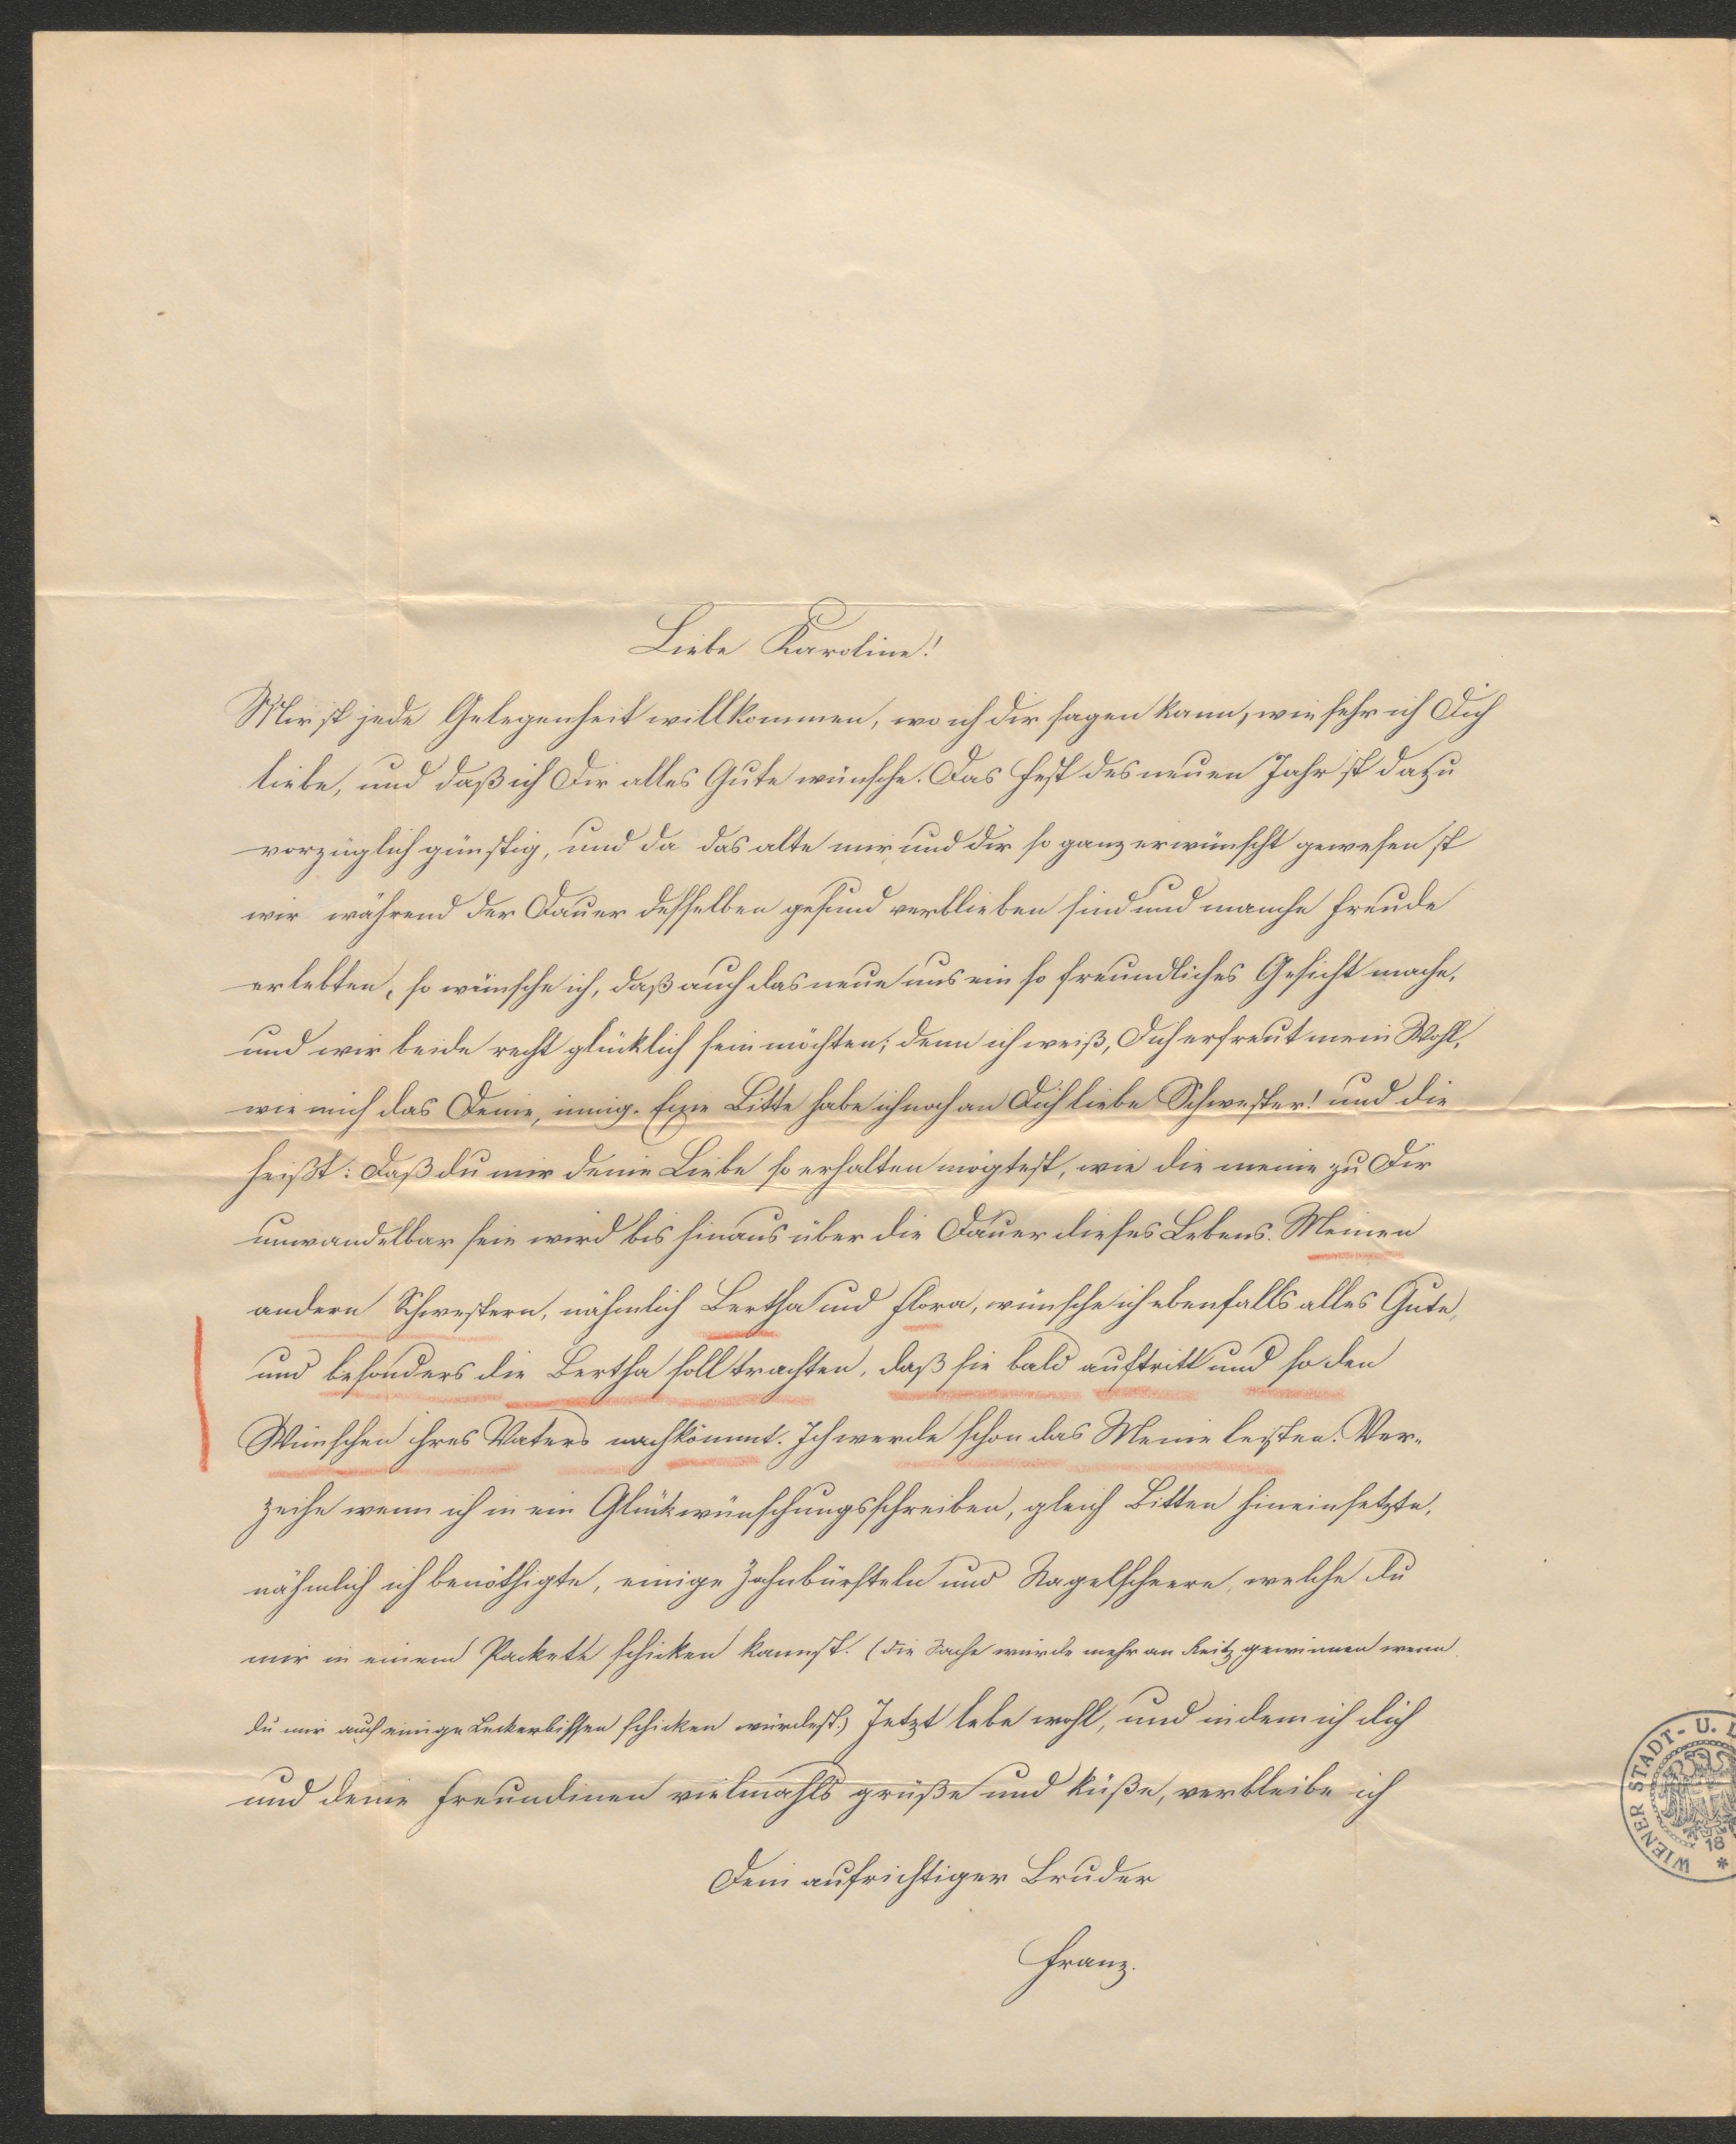 Liebe Karoline!
Mir ist jede Gelegenheit willkommen, wo ich dir sagen kann, wie sehr ich Dich
liebe, und daß ich Dir alles Gute wünsche. Das Fest des neuen Jahr ist dazu
vorzüglich günstig, und da das alte mir und dir so ganz erwünscht gewesen ist
wir während der Dauer desselben gesund verblieben sind und manche Freude
erlebten, so wünsche ich, daß auch das neue uns ein so freundliches Gesicht mache,
und wir beide recht glücklich sein möchten; denn ich weiß, Dich erfreut mein Wohl,
wie mich das Deine, innig. Eine Bitte habe ich noch an Dich liebe Schwester! und die
heißt: Daß du mir deine Liebe so erhalten mögtest, wie die meine zu Dir
unwandelbar sein wird bis hinaus über die Dauer dieses Lebens. Meinen
andern Schwestern, nähmlich Bertha und Flora, wünsche ich ebenfalls alles Gute,
und besonders die Bertha soll trachten, daß sie bald auftritt und so den
Wünschen ihres Vaters nachkömmt. Ich werde schon das Meine leisten. Ver-
zeihe wenn ich in ein Glückwünschungsschreiben, gleich Bitten hineinsetzte,
nähmlich ich benöthigte, einige Zahnbürsteln und Nagelscheere, welche du
mir in einem Packete schicken kannst. (Die Sache würde mehr an Reitz gewinnen wenn
du mir auch einige Leckerbissen schicken würdest.) Jetzt lebe wohl, und indem ich dich
und deine Freundinen vielmahls grüße und küße, verbleibe ich
Dein aufrichtiger Bruder
Franz.
WIENER STADT- U. L
18